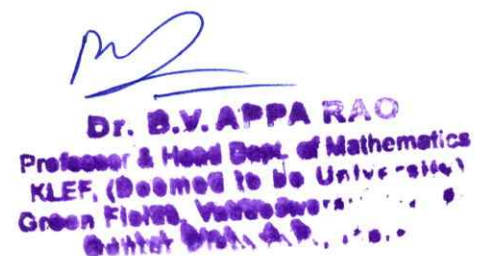 Dr. B.V. APPA RAO
Professor & Head Dept. of Mathematics
KLEF, (Deemed to be University)
Green Fields,
Guntur Dist., A.P.